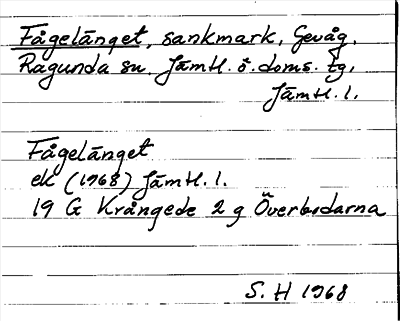 Fågelänget, sankmark, Gevåg,
Ragunda sn. Jämtl. ö. doms. tg.
Jämtl. l.
Fågelänget
ek (1968) Jämtl. l.
19 G Krångede 2 g Överbodarna
S. H 1968